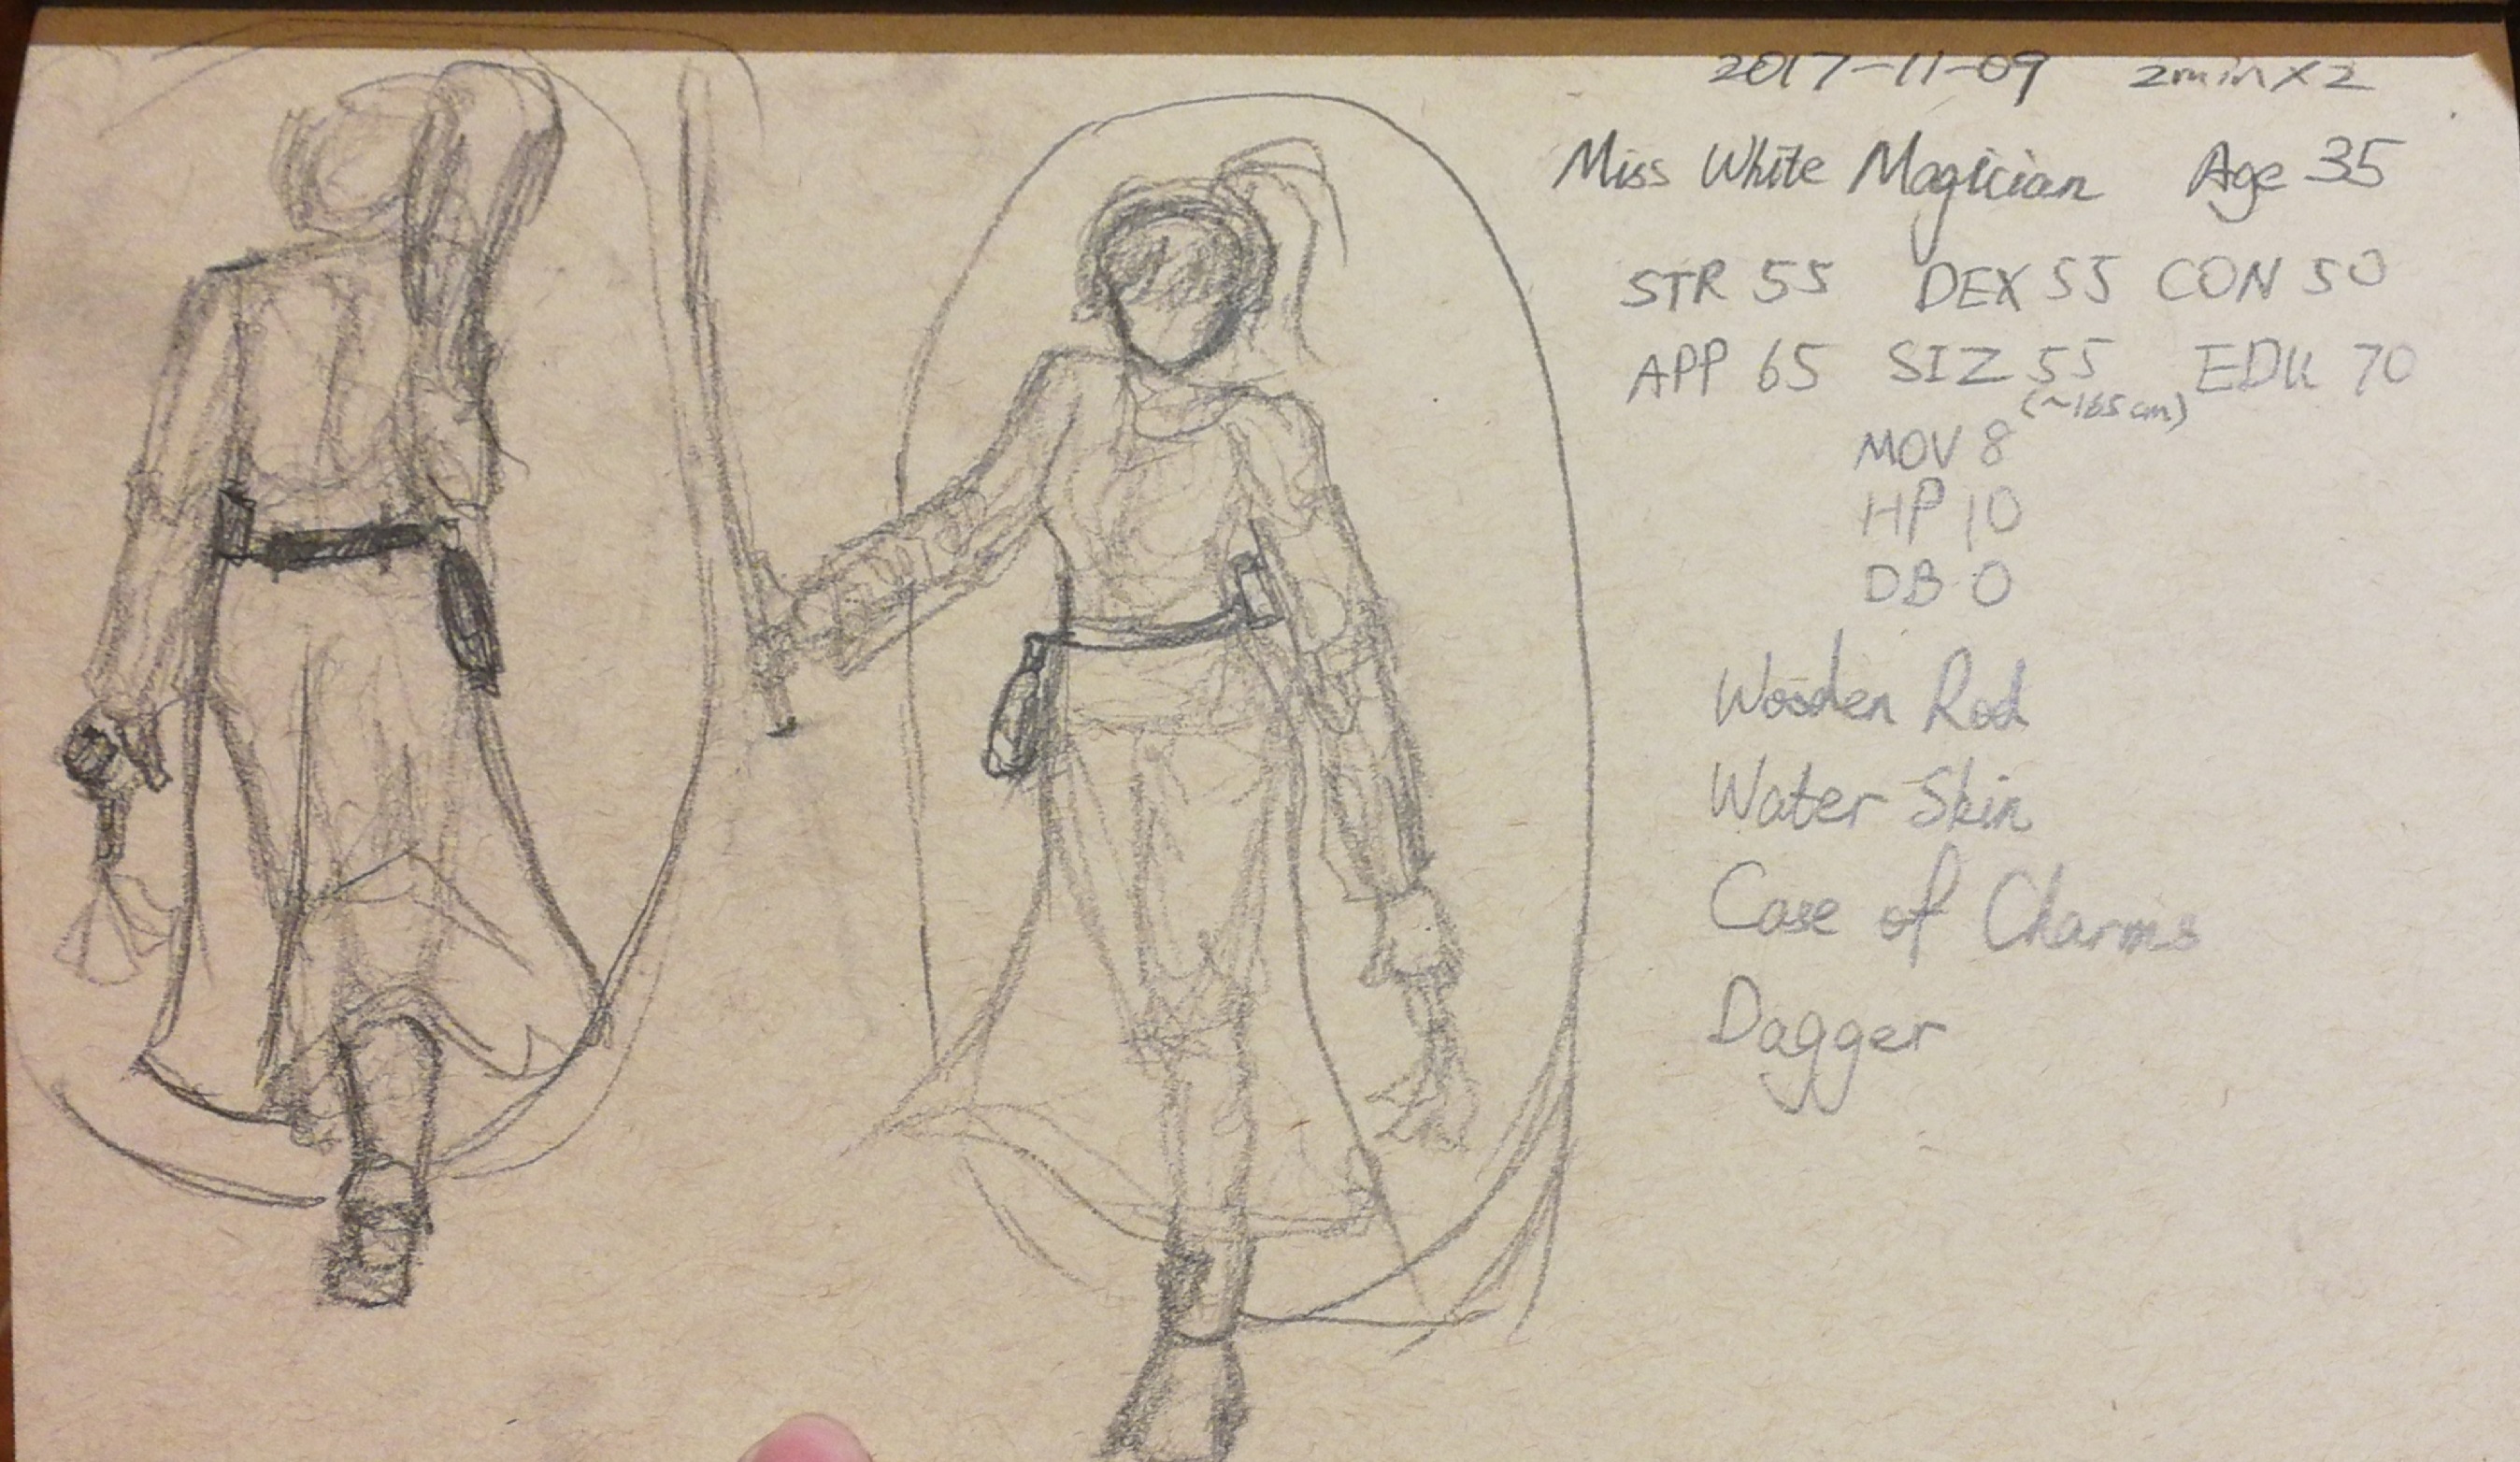 2017-11-09 2min×2
Miss White Magician Age 35
STR 55 DEX 55 CON 50
APP 65 SIZ 55 EDU 70
(~165cm)
MOV 8
HP 10
DB 0
Wooden Rod
Water Skin
Case of Charms
Dagger